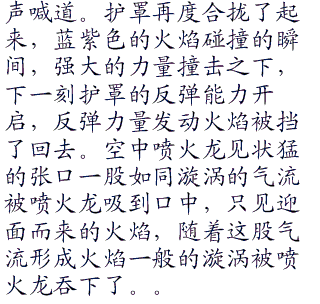 声喊道。护罩再度合拢了起
来，蓝紫色的火焰碰撞的瞬
间，强大的力量撞击之下，
下一刻护罩的反弹能力开
启，反弹力量发动火焰被挡
了回去。空中喷火龙见状猛
的张口一股如同漩涡的气流
被喷火龙吸到口中，只见迎
面而来的火焰，随着这股气
流形成火焰一般的漩涡被喷
火龙吞下了。。